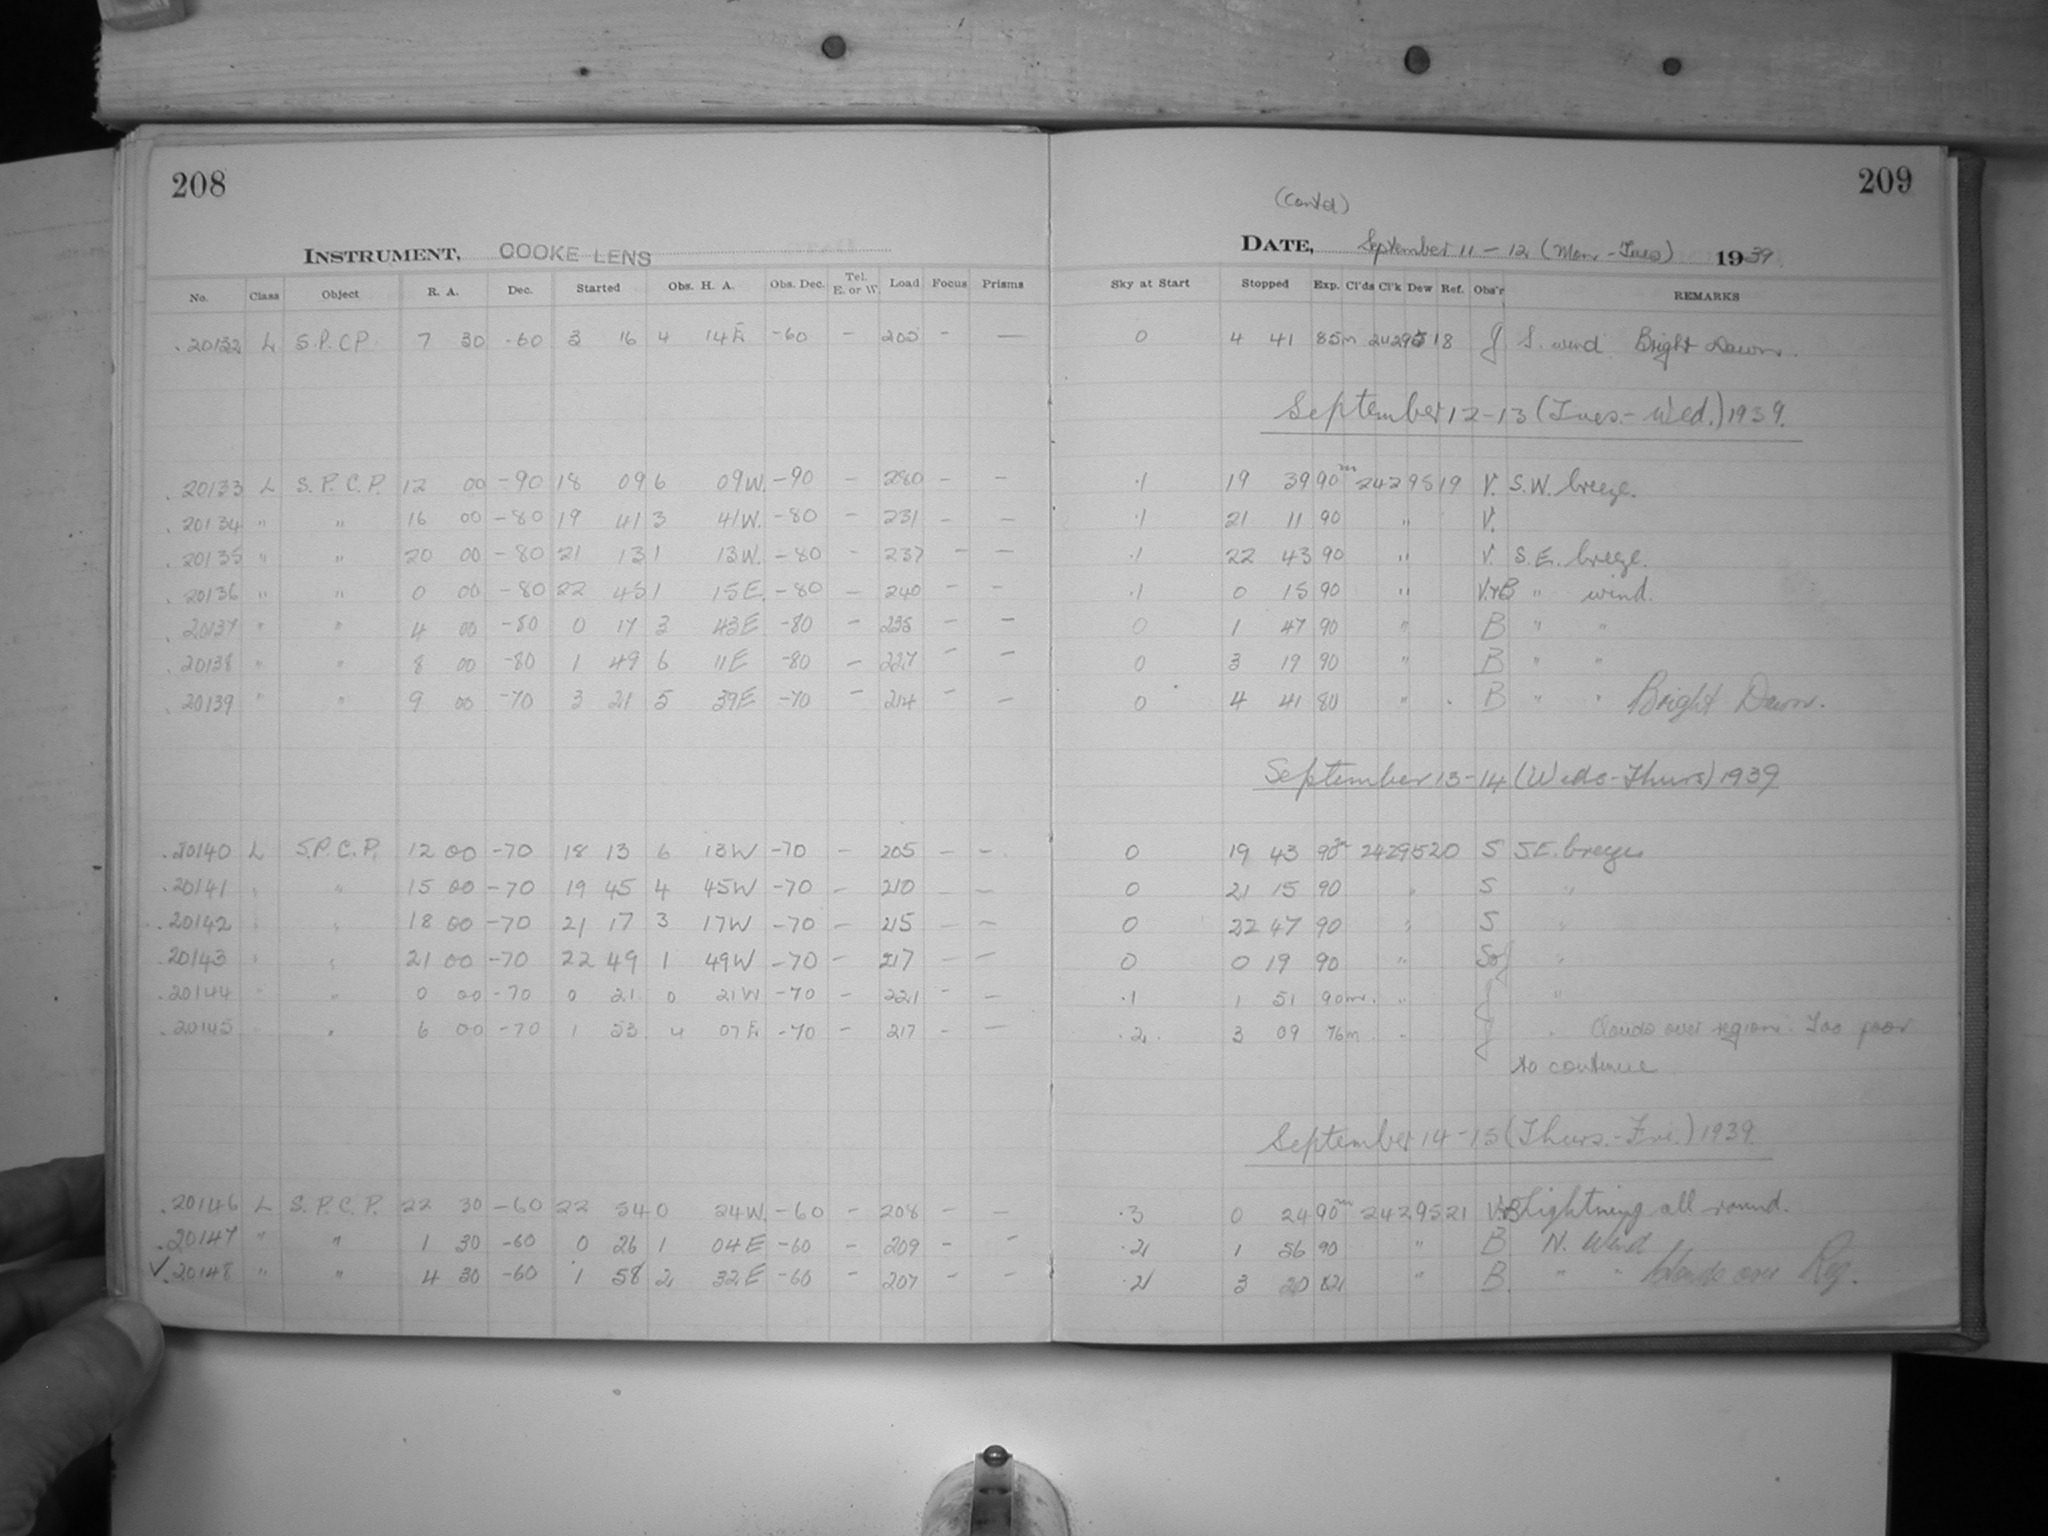 208
INSTRUMENT, COOKE LENS
No. Class Object R. A. Dec. Started Obs. H. A. Obs. Dec. Tel. E. or W. Load Focus Prisms
.20132 L S.P.C.P. 7 30 -60 3 16 4 14E -60 – 205 – –
.20133 L S.P.C.P. 12 00 -90 18 09 6 09W. -90 – 280 – –
.20134 " " 16 00 -80 19 41 3 41W. -80 – 231 – –
.20135 " " 20 00 -80 21 13 1 13W. -80 – 237 – –
.20136 " " 0 00 -80 22 45 1 15E. -80 – 240 – –
.20137 " " 4 00 -80 0 17 3 43E -80 – 235 – –
.20138 " " 8 00 -80 1 49 6 11E -80 – 227 – –
.20139 " " 9 00 -70 3 21 5 39E -70 – 214 – –
.20140 L S.P.C.P. 12 00 -70 18 13 6 13W -70 – 205 – –
.20141 " " 15 00 -70 19 45 4 45W -70 – 210 – –
.20142 " " 18 00 -70 21 17 3 17W -70 – 215 – –
.20143 " " 21 00 -70 22 49 1 49W -70 – 217 – –
.20144 " " 0 00 -70 0 21 0 21W -70 – 221 – –
.20145 " 6 00 -70 1 53 4 07E -70 – 217 – –
.20146 L S.P.C.P. 22 30 -60 22 54 0 24W. -60 – 208 – –
.20147 " " 1 30 -60 0 26 1 04E -60 – 209 – –
✓.20148 " " 4 30 -60 1 58 2 32E -60 – 207 – –
209
(Contd)
DATE, September 11-12 (Mon-Tues) 1939.
Sky at Start Stopped Exp. Cl'ds Cl'k Dew Ref. Obs'r REMARKS
0 4 41 85m 2429518 J S. wind. Bright Dawn.
September 12-13 (Tues.-Wed.) 1939.
.1 19 39 90m 2429519 V. S.W. breeze.
.1 21 11 90 " V.
.1 22 43 90 " V. S.E. breeze.
.1 0 15 90 " V.+B " wind.
0 1 47 90 " B " "
0 3 19 90 " B " "
0 4 41 80 " B " " Bright Dawn.
September 13-14 (Weds-Thurs) 1939
0 19 43 90m 2429520 S S.E. breeze
0 21 15 90 " S "
0 22 47 90 " S "
0 0 19 90 " "
.1 1 51 90m. " J "
.2 3 09 76m " " Clouds over region. Too poor
to continue
September 14-15 (Thurs.-Fri.) 1939.
.3 0 24 90m 2429521 V+B Lightning all round.
.2 1 56 90 " B N. Wind
.2 3 20 82 " B. " " Clouds over Reg.